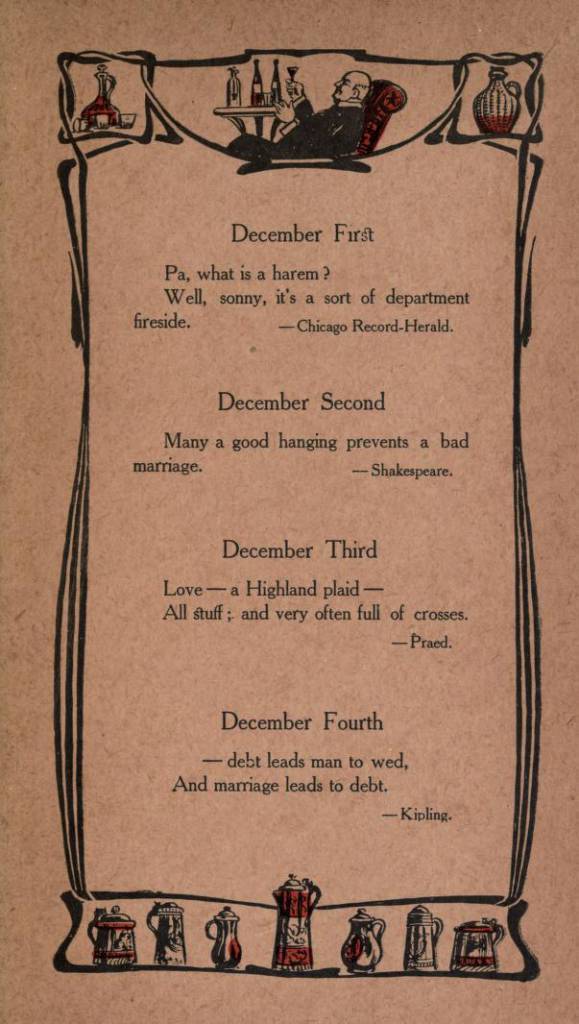 December First
Pa, what is a harem?
Well, sonny, it's a sort of department
fireside. — Chicago Record-Herald.
December Second
Many a good hanging prevents a bad
marriage. — Shakespeare.
December Third
Love — a Highland plaid —
All stuff; and very often full of crosses.
— Praed.
December Fourth
— debt leads man to wed,
And marriage leads to debt.
— Kipling.